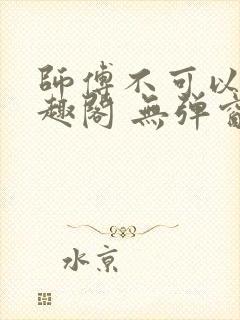 師傅不可以
趣閣 無彈
水京